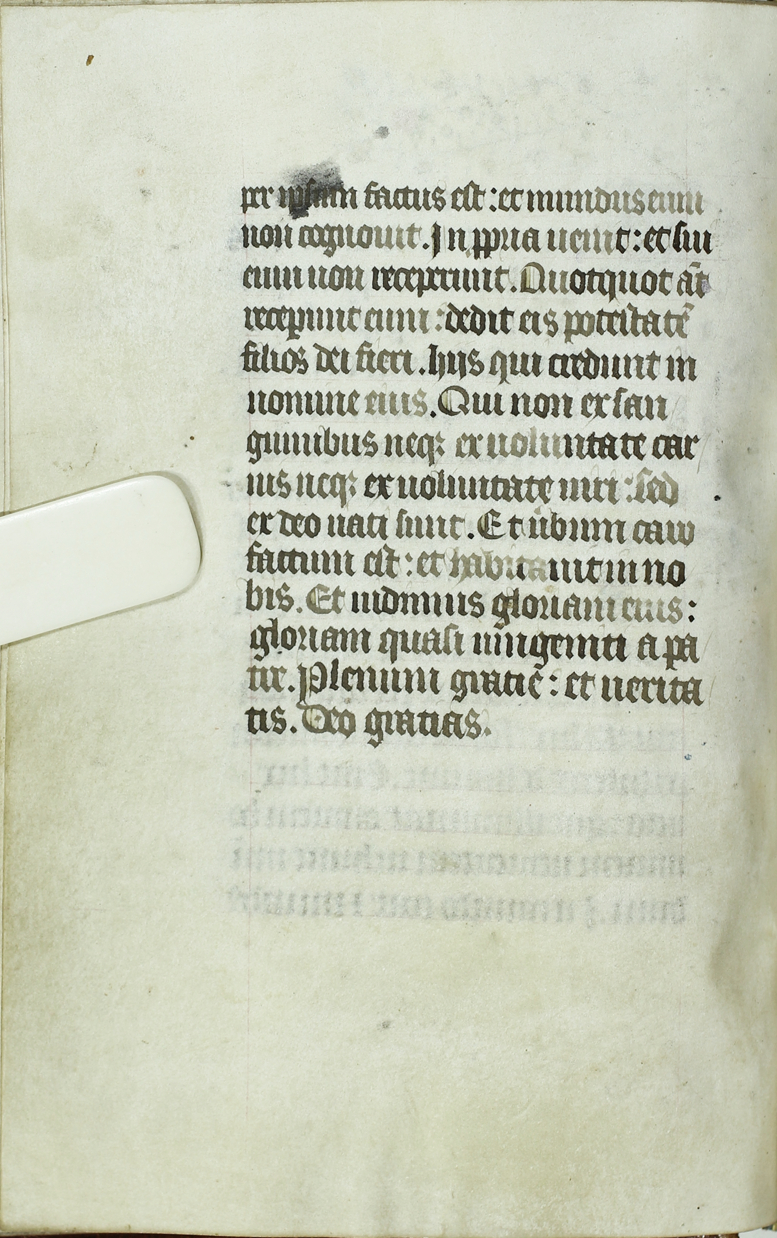 per ipsam factus est : et mundus eum
non cognouit . In ꝓpria uenit : et sui
eum non receperunt . Quotquot aūt
receꝑunt eum : dedit eis potestatē
filios dei fieri . hijs qui credunt in
nomine eius . Qui non ex san
guinibus neqꝫ ex uoluntate car
nis neqꝫ ex uoluntate uiri : sed
ex deo nati sunt . Et ūbum caro
factum est : et habitauit in no
bis . Et uidimus gloriam eius :
gloriam quasi unigeniti a pa
tre . Plenum gratiē : et uerita
tis . Deo gratias .